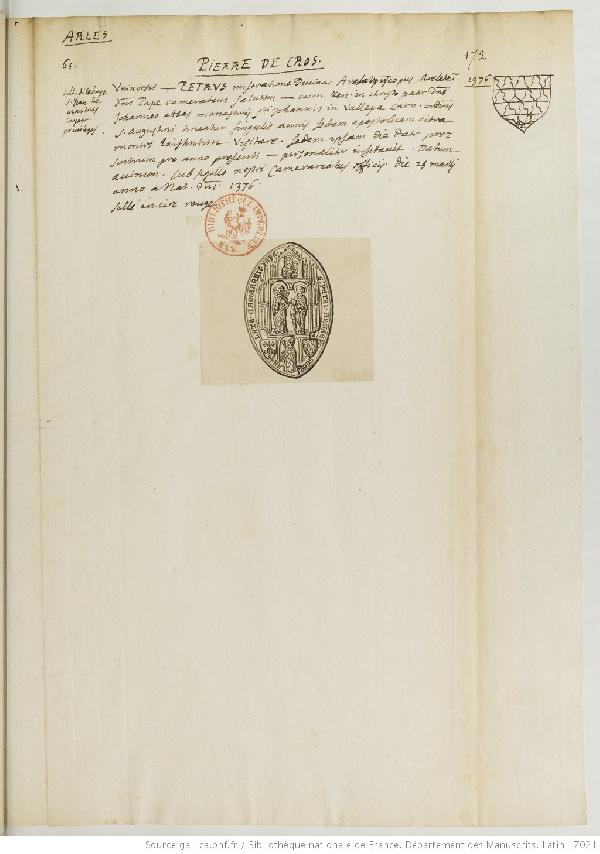 ARLES
65. PIERRE DE CROS. 172
1376
Universis — PETRVS miseratione Divina Archiepiscopus Arelaten
Dni Pape camerarius salutem — cum Ven. in christo pater Dns
Johannes abbas monasterii Sti Johannis in Valleia Carn. ordinis
S. Augustini singulis annis sedem apostolicam citra
montes Visitare. sedem ipsam die date pre
sentium pro anno presenti — personaliter visitavit. Datum
avinion. sub sigillo nostri Camerariatus officii die 29
anno a Nat. Dni 1376
scellé en cire rouge
BIBLIOTHEQUE IMPERIALE MAN.
Source gallica.bnf.fr / Bibliothèque nationale de France. Département des Manuscrits. Latin 17021